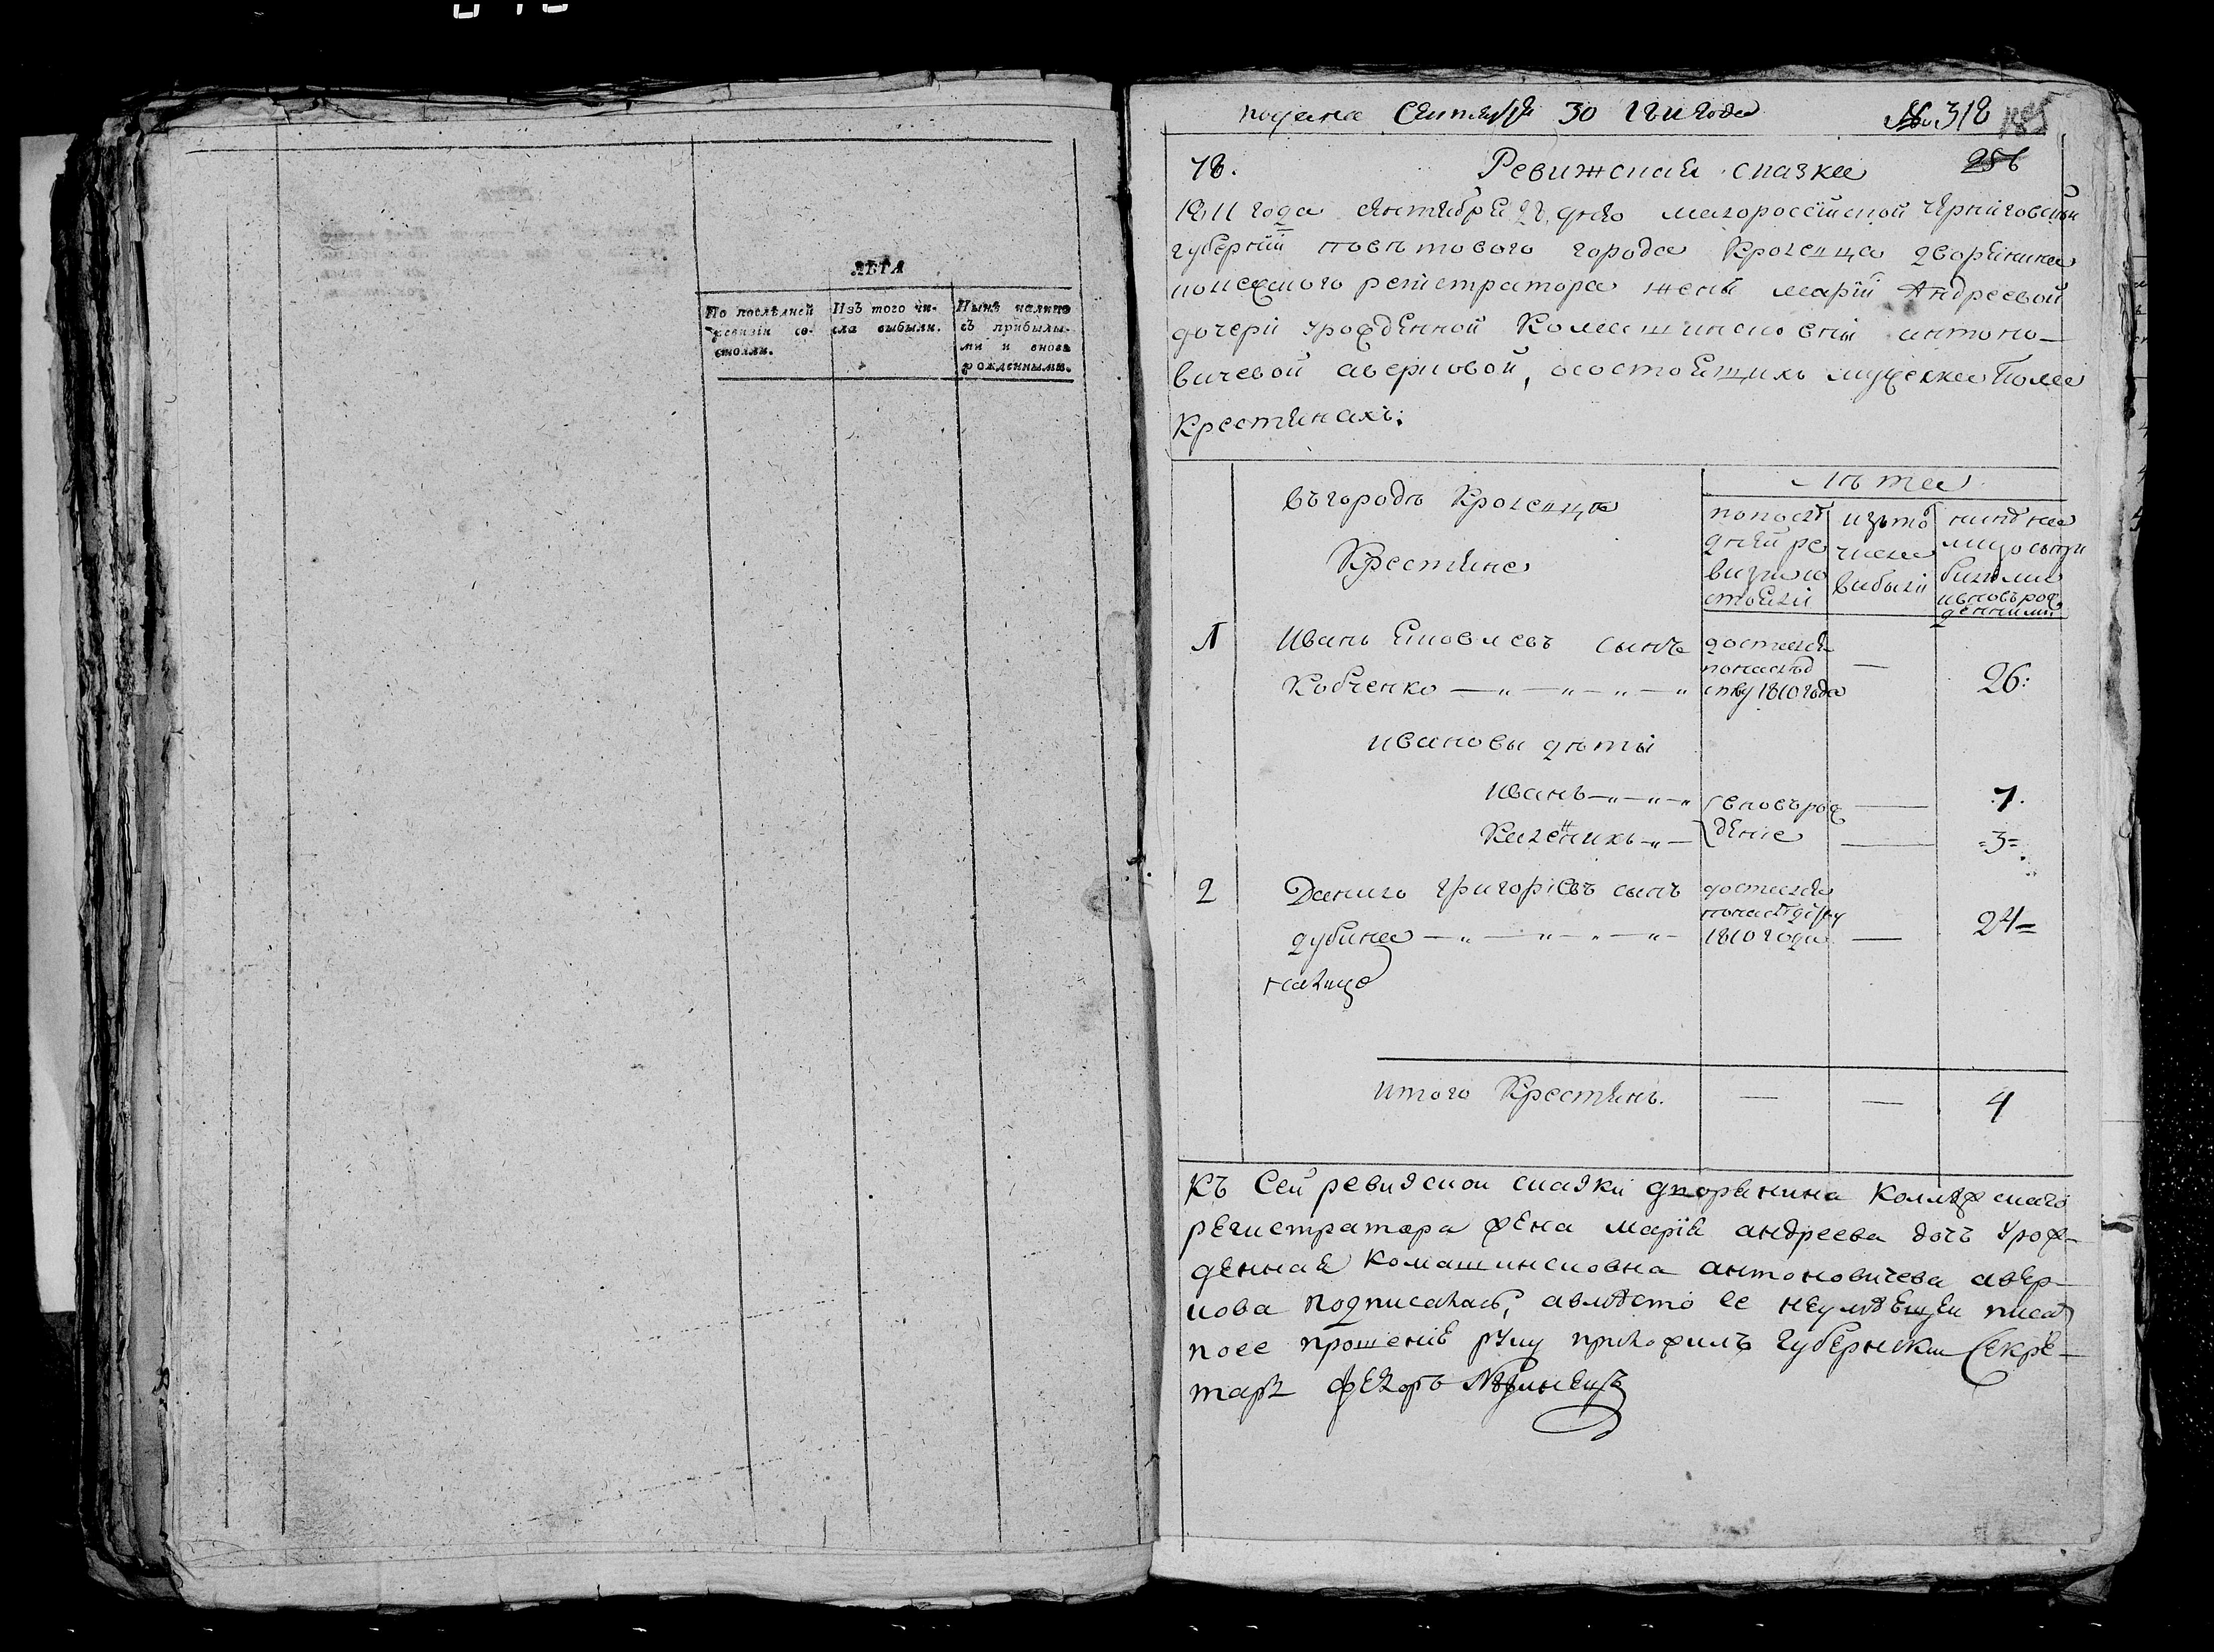 ЛѢТА
По послѣдней ревизіи состояли.
Изъ того числа выбыли.
Нынѣ налицо съ прибылыми и вновь рожденными.
подана Сентября 30 1811 года № 318 185
78. Ревижская сказка 256
1811 года сентября 28 дня малороссійской черниговской
губерніи повѣтового города Кролевца дворянина
колежского регистратора жены маріи Андреевой
дочери урожденной Комашинсковны антоно-
вичевой аверковой, осостоящихъ мужеска пола
крестянахъ:
въ городѣ Кролевцѣ
Крестяне
Лѣта
по послѣдней ревизіи состояли
изъ того числа выбыли
нинѣ на лицо съ прибилими и вновь рожденними
1 Иванъ Яковлевъ сынъ
Кобченко
достался по наслѣдству 1810 года — 26:
ивановы дѣти
иванъ вновь рожденне — 7.
— =3=
2 Данило григоріевъ сынъ
дубина
достался по наслѣдству 1810 года — 24=
итого Крестянъ. — — 4
Къ Сей ревизской сказки дворянина Коллежскаго
регистратора жена марія андреева дочъ урож-
денная комашинсковна антоновичева авер-
кова подписалась, авмѣсто ее неумѣющей писать
поее прошенію руку приложилъ Губернскій Секре-
таръ федоръ